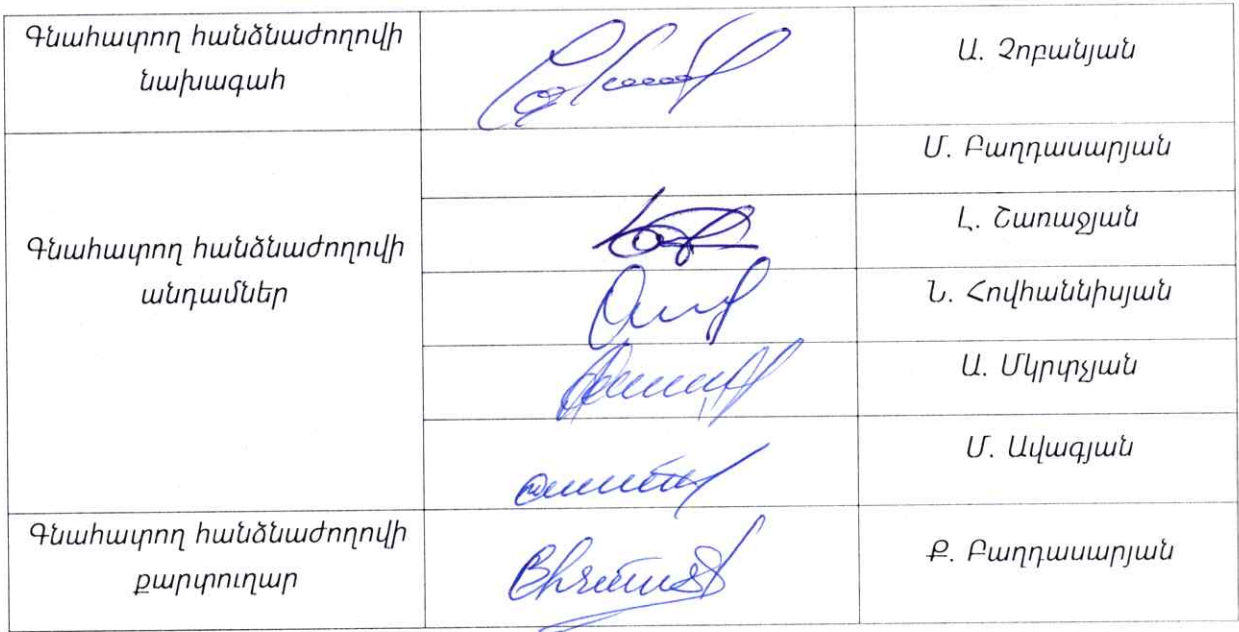 Գնահատող հանձնաժողովի
նախագահ
Ա. Չոբանյան
Գնահատող հանձնաժողովի
անդամներ
Մ. Բաղդասարյան
Լ. Շառաջյան
Ն. Հովհաննիսյան
Ա. Մկրտչյան
Մ. Ավագյան
Գնահատող հանձնաժողովի
քարտուղար
Ք. Բաղդասարյան